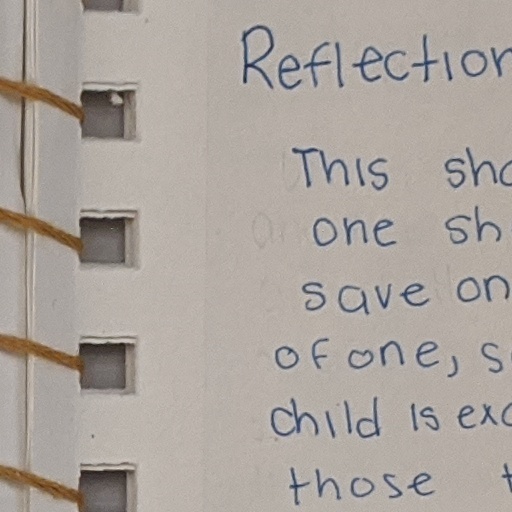 Reflection
This sho
one sh
save on
of one, s
child is exc
those t